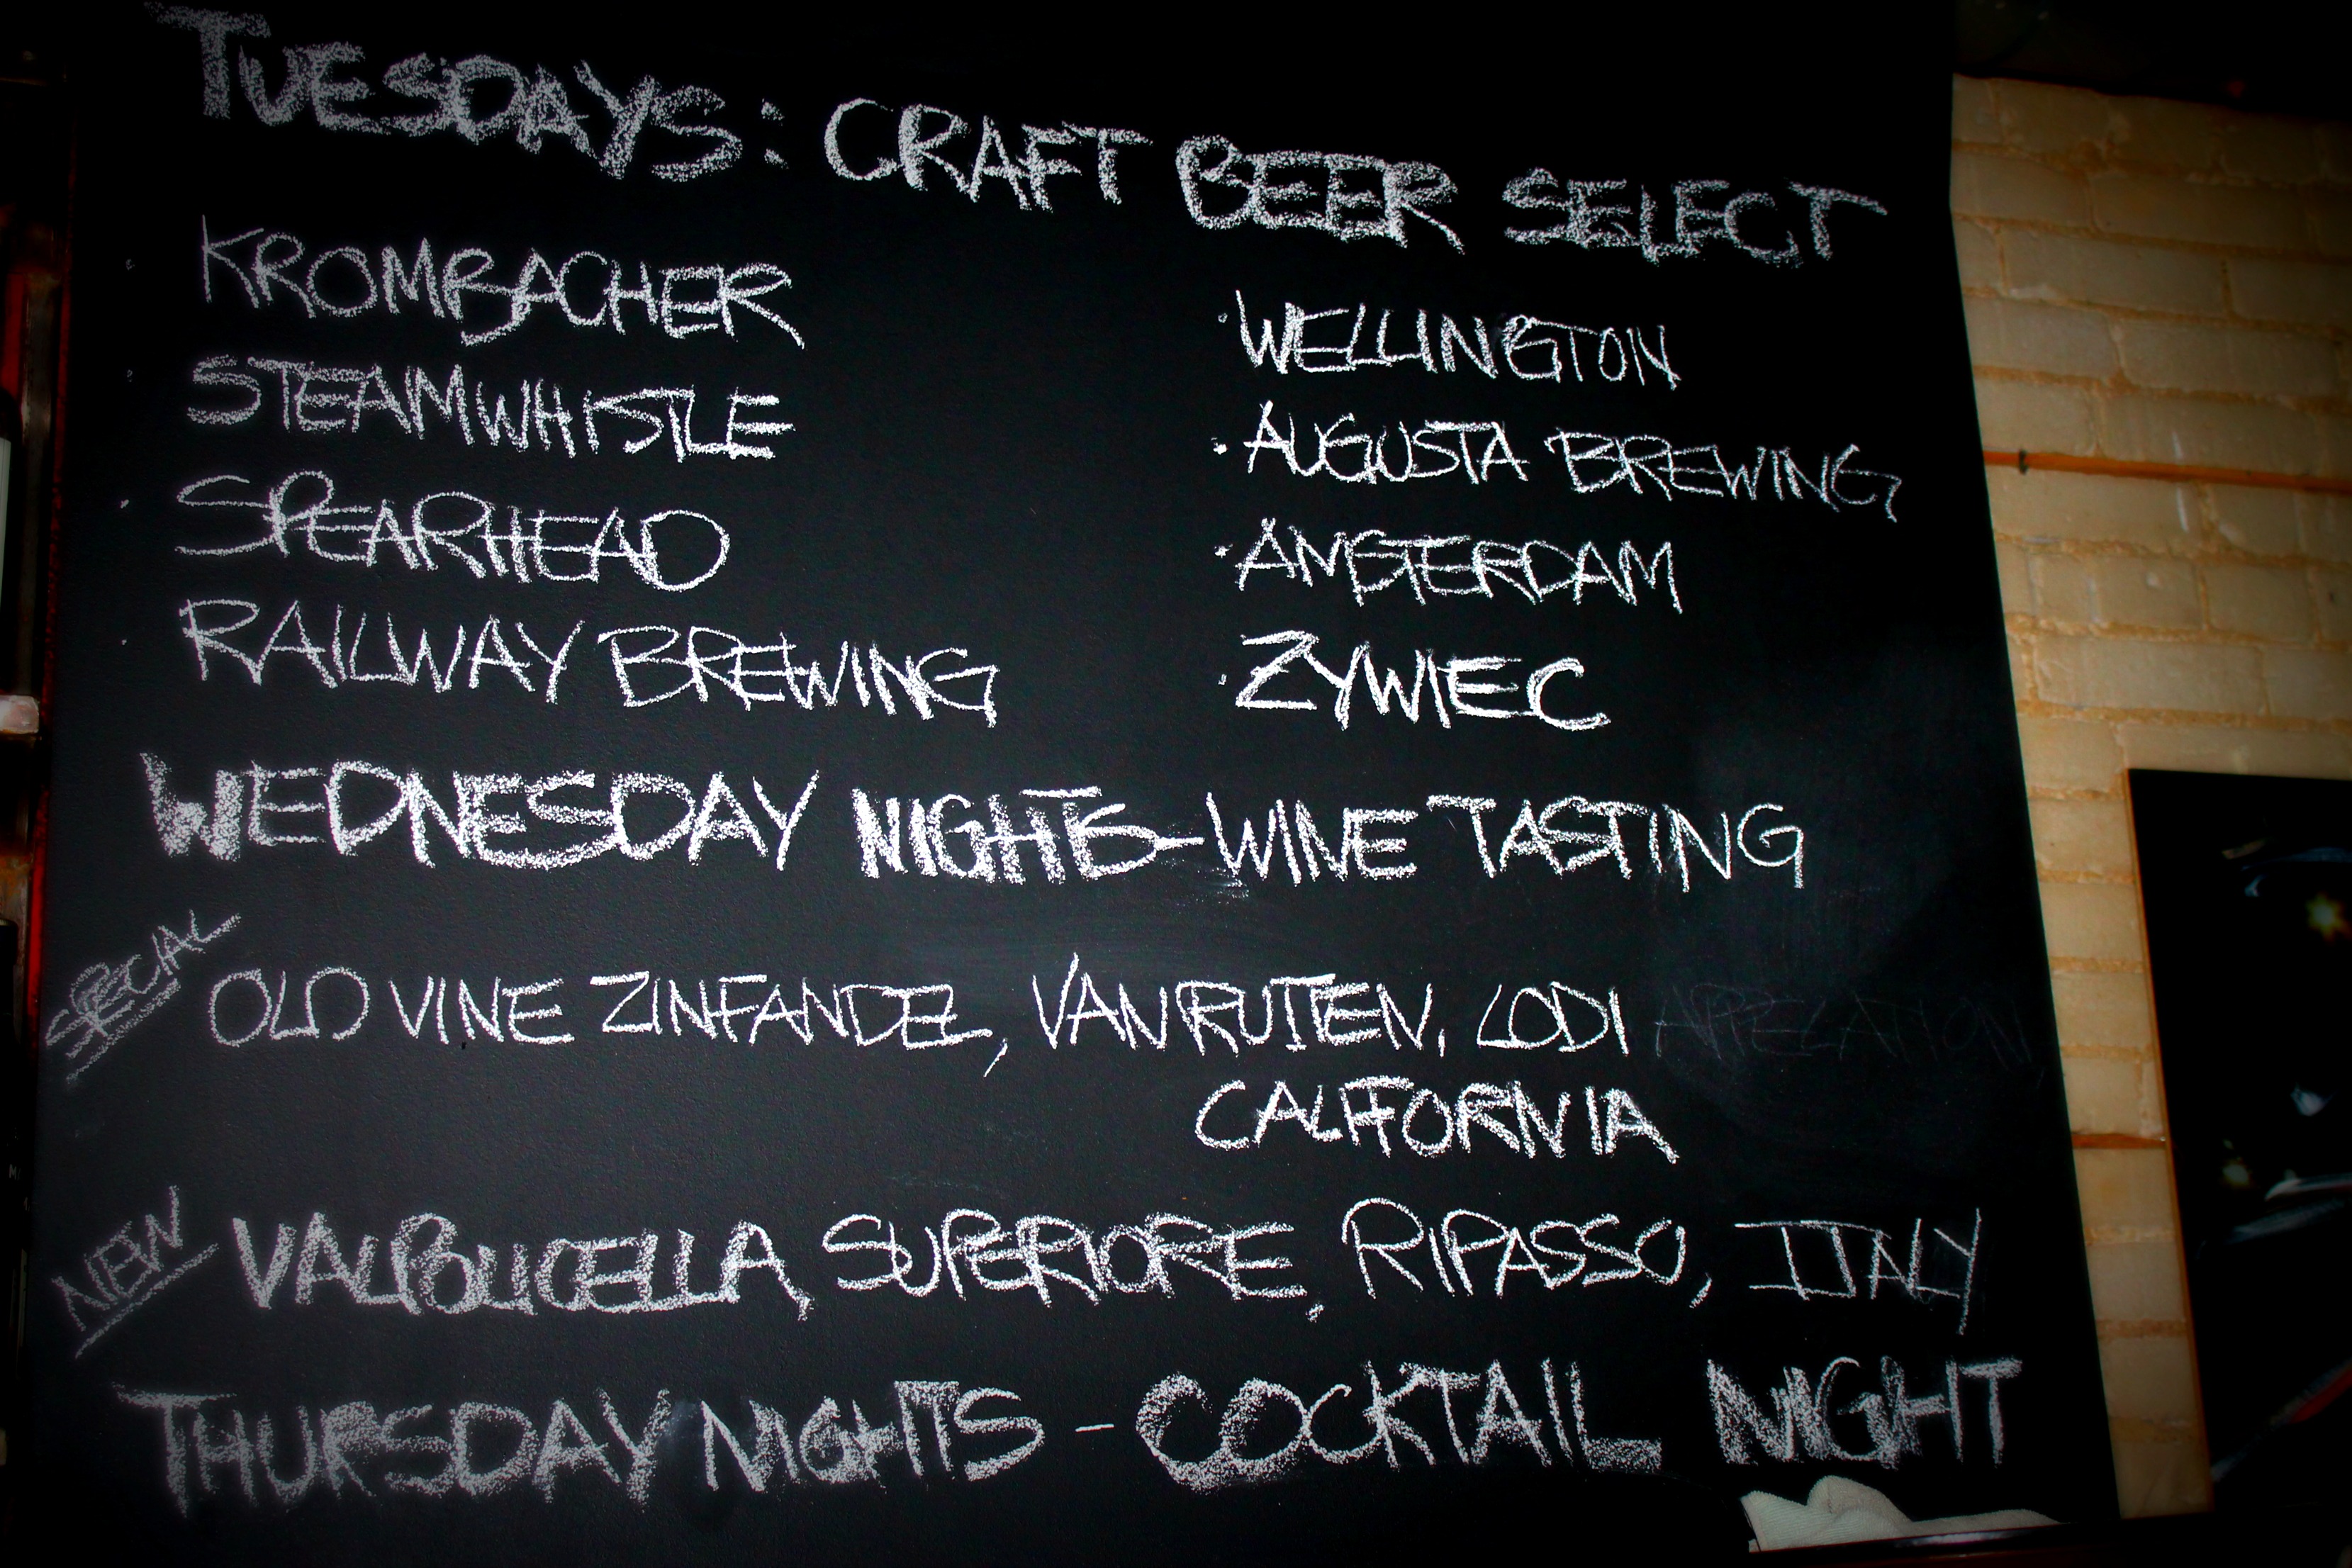 TUESDAYS: CRAFT BEER SELECT
· KROMBACHER
· STEAMWHISTLE
· SPEARHEAD
· RAILWAY BREWING
· WELLINGTON
· AUGUSTA BREWING
· AMSTERDAM
· ZYWIEC
WEDNESDAY NIGHTS-WINE TASTING
SPECIAL
OLD VINE ZINFANDEL, VAN RUITEN, LODI APPELATION
CALIFORNIA
NEW
VALPOLICELLA, SUPERIORE, RIPASSO, ITALY
THURSDAY NIGHTS - COCKTAIL NIGHT